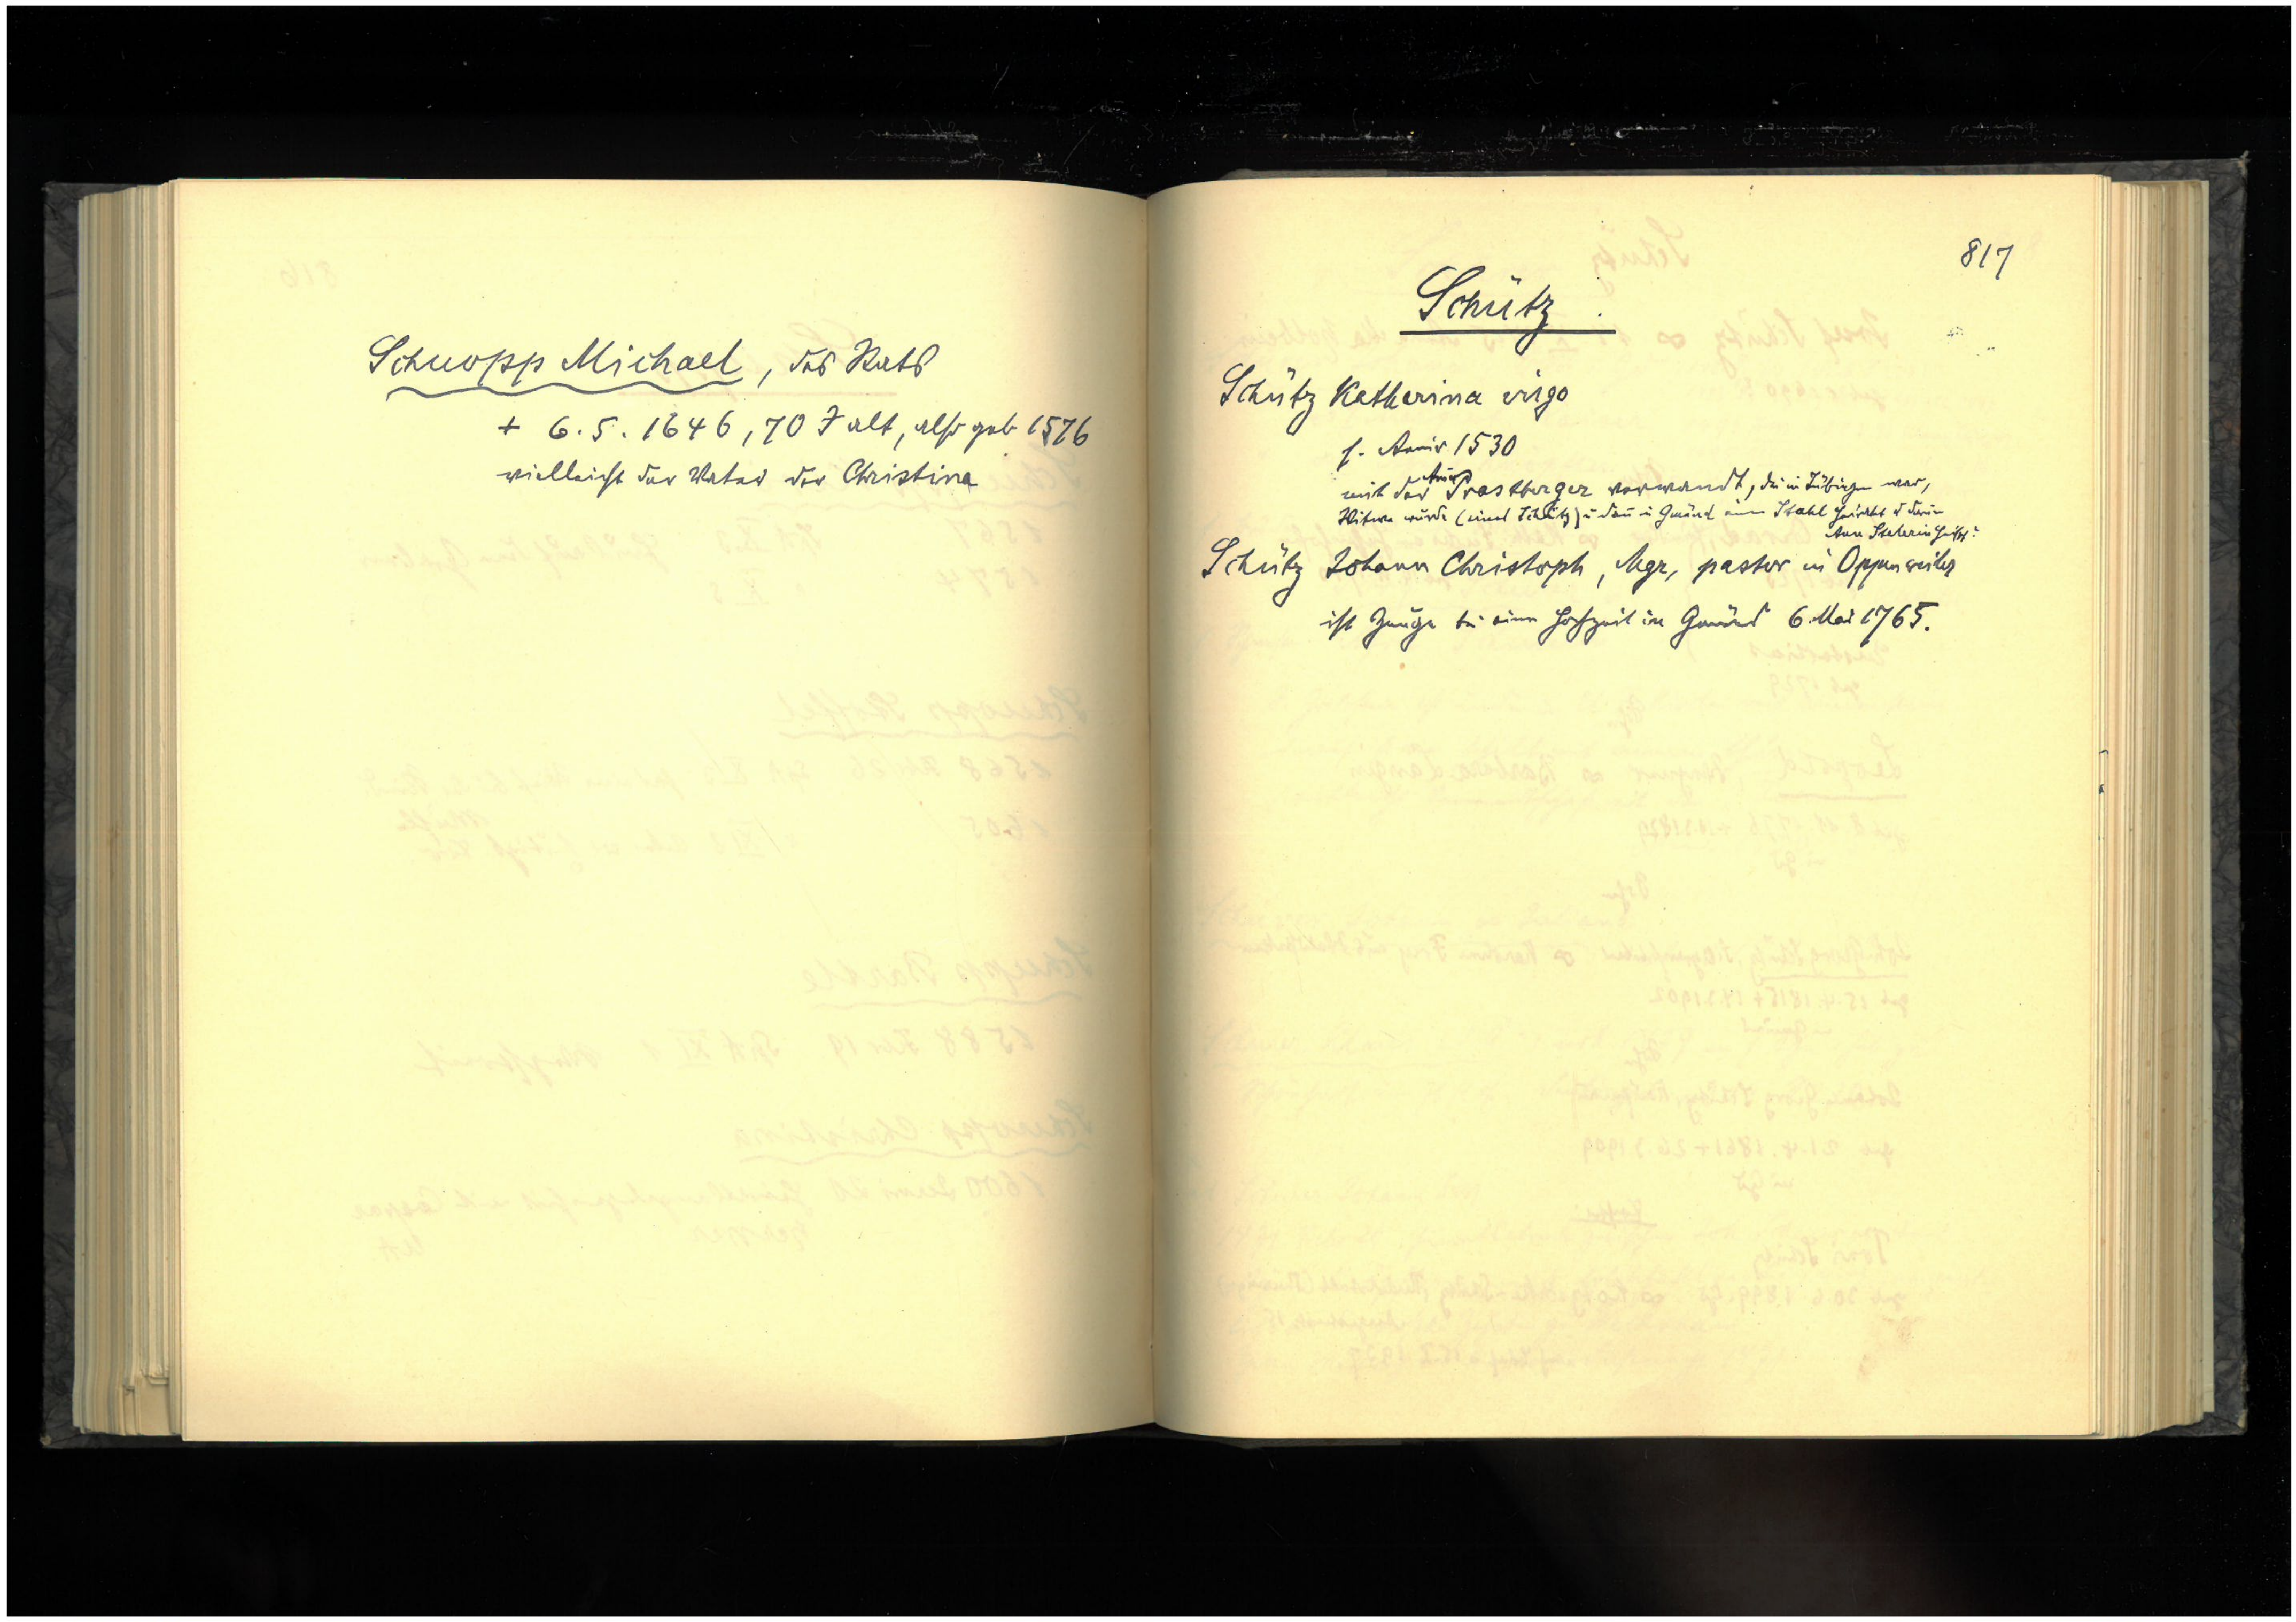 Schuopp Michael, des Rats
+ 6.5.1646, 70 J alt, also geb 1576
vielleicht der Vater der Christina
817
Schütz
Schütz Katharina virgo
s. Anniv 1530
mit der Anna Trostberger verwandt, die in Tübingen war,
Witwe wurde (eines Schütz) u dann in Gmünd einen Stahl heiratet u darin
Anna Stahelerin heißt?
Schütz Johann Christoph, Mgr, pastor in Oppenweiler
ist Zeuge bei einer Hochzeit in Gmünd 6. Mai 1765.